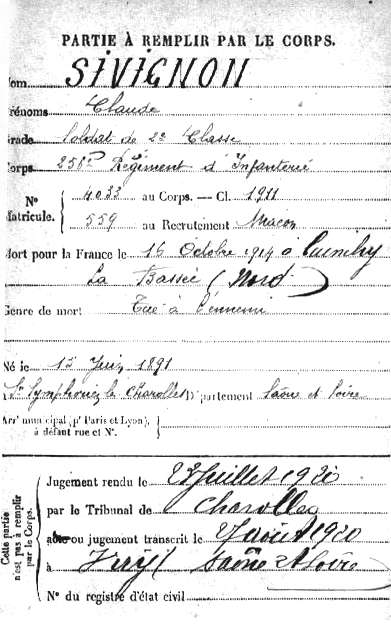 PARTIE À REMPLIR PAR LE CORPS.
Nom SIVIGNON
Prénoms Claude
Grade Soldat de 2e Classe
Corps 256e Régiment d'Infanterie
No Matricule. 4033 au Corps. — Cl. 1911
559 au Recrutement Macon
Mort pour la France le 16 Octobre 1914 à Cuinchy
La Bassée (Nord)
Genre de mort Tué à l'ennemi
Né le 15 Juin 1891
à St Symphorien les Charolles Département Saône et Loire
Arrt municipal (pr Paris et Lyon),
à défaut rue et No.
Cette partie n'est pas à remplir par le Corps.
Jugement rendu le Juillet 1920
par le Tribunal de Charolles
acte ou jugement transcrit le 7 août 1920
à Saône et Loire
No du registre d'état civil